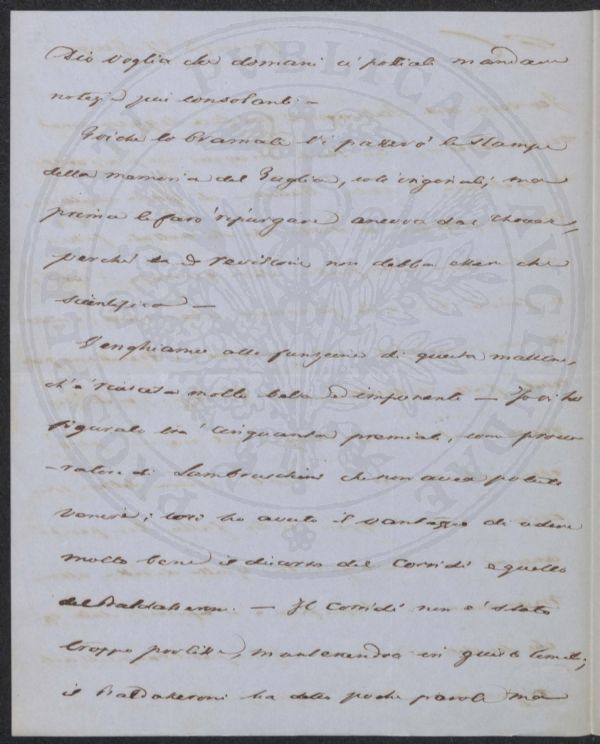 Dio voglia che domani ci possiate mandare
notizie più consolanti. —
Poiche lo bramate Vi passerò le stampe
della memoria del Puglia, così originali; ma
prima le farò ripurgare ancora dal
perchè la di revisione non debba essere che
scientifica —
Venghiamo alla funzione di questa mattina,
ch'è riuscita molto bella ed imponente — Io vi ho
figurato tra' cinquanta premiati, come procu-
-ratore di Lambruschini che non avea potuto
venire; così ho avuto il vantaggio di udire
molto bene il discorso del Corridi e quello
del Baldasseroni. — Il Corridi non è stato
troppo prolisso, mantenendosi in giusti limiti;
il Baldasseroni ha detto poche parole ma
PROSPERITATI PUBLICAE AUGENDAE